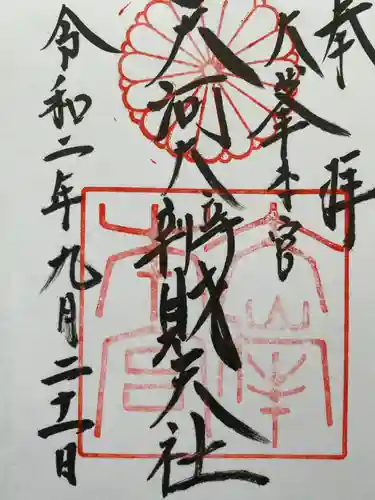 奉拝
大峯本宮
天河大辨財天社
令和二年九月二十一日